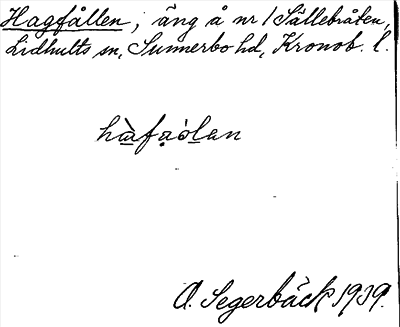 Hagfållen, äng å nr 1 Sällebråten,
Lidhults sn, Sunnerbo hd, Kronob. l.
hàfaólan
A. Segerbäck 1939.